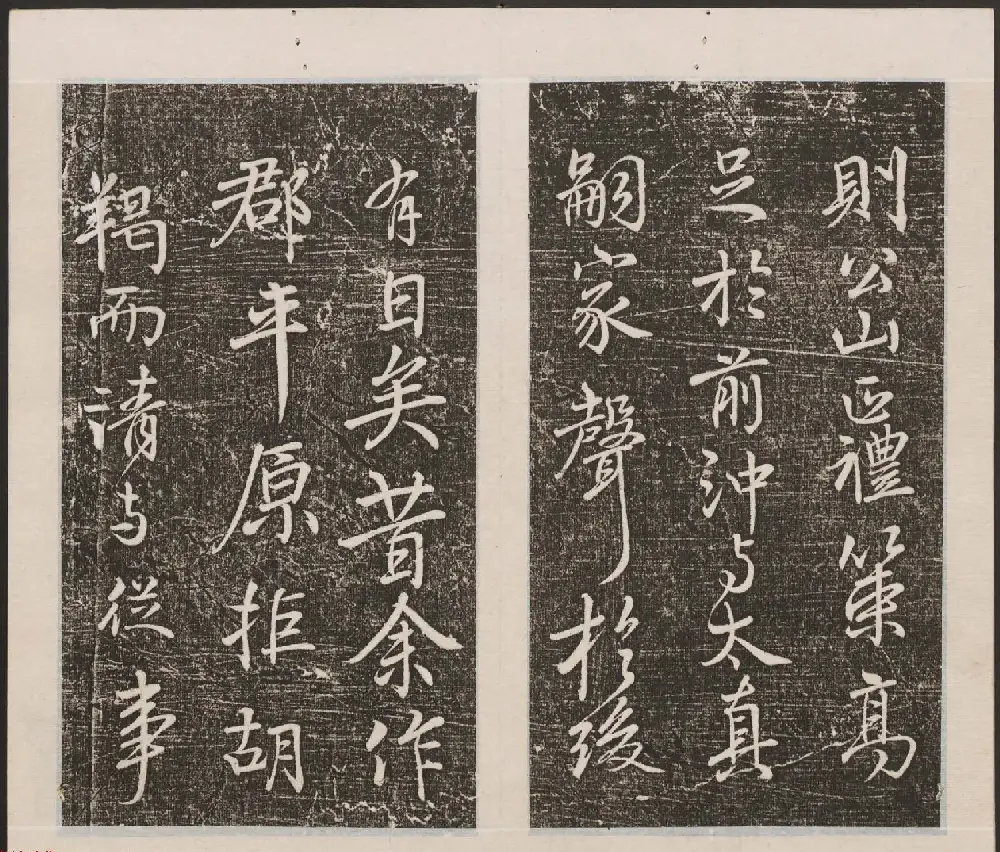 則公山正禮策高
足於前沖与太真
嗣家聲於後
有日矣昔余作
郡平原拒胡
羯而请与從事